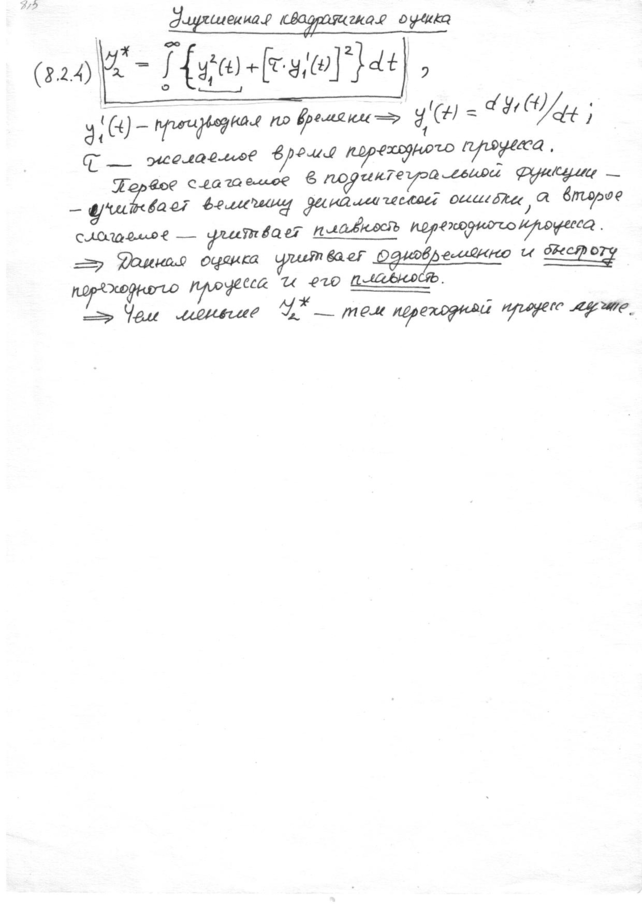 8.5
Улучшенная квадратичная оценка
(8.2.4) y₂* = ∫₀^∞ {y₁²(t) + [τ·y₁'(t)]²} dt ,
y₁'(t) – производная по времени ⇒ y₁'(t) = dy₁(t)/dt ;
τ — желаемое время переходного процесса.
Первое слагаемое в подинтегральной функции –
– учитывает величину динамической ошибки, а второе
слагаемое — учитывает плавность переходного процесса.
⇒ Данная оценка учитывает одновременно и быстроту
переходного процесса и его плавность.
⇒ Чем меньше y₂* — тем переходной процесс лучше.